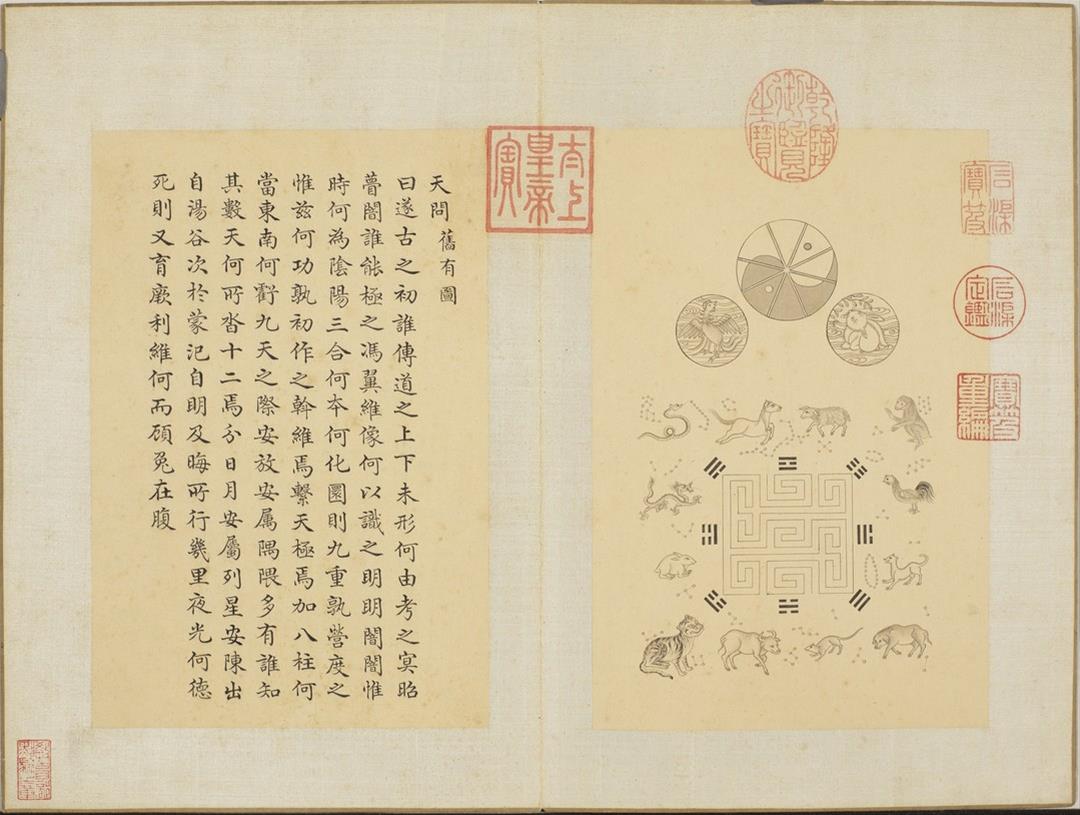 乾隆御覽之寶
石渠寶笈
石渠定鑑
寶笈重編
太上皇帝寶
天問 舊有圖
曰遂古之初誰傳道之上下未形何由考之冥昭
瞢闇誰能極之馮翼維像何以識之明明闇闇惟
時何為陰陽三合何夲何化圜則九重孰營度之
惟茲何功孰初作之斡維焉繫天極焉加八柱何
當東南何虧九天之際安放安属隅隈多有誰知
其數天何所沓十二焉分日月安屬列星安陳出
自湯谷次於蒙汜自明及晦所行幾里夜光何德
死則又育厥利維何而顧兔在腹